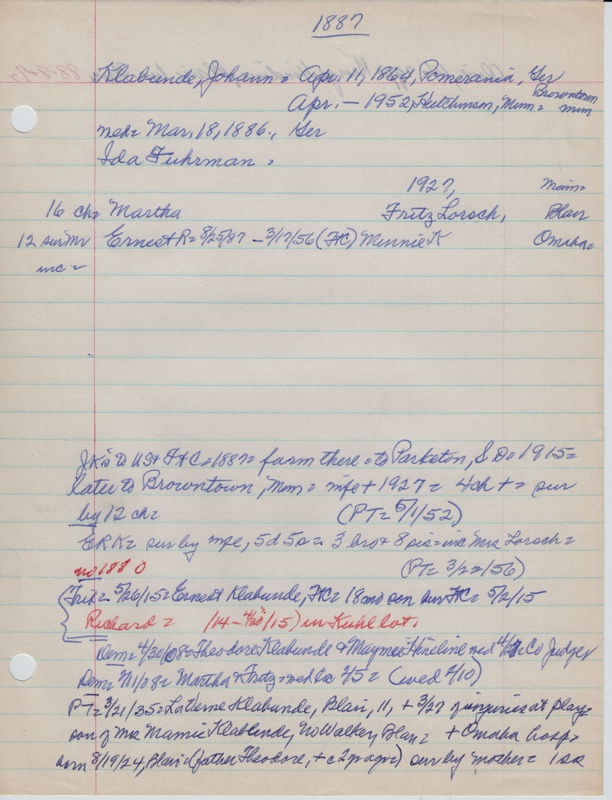 1887
Klabunde, Johann = Apr. 11, 1864, Pomerania, Ger
Browntown
Apr. — 1952, Hutchinson, Minn = minn
med = Mar. 18, 1886., Ger
Ida Fuhrman.
1927, Minn =
16 ch = Martha Fritz Lorsch, Blair
12 sur Mr Ernest R = 8/25/87 — 3/17/56 (FtC) Minnie K Omaha.
inc =
JK is to US + FtC = 1887 = farm there = to Parkston, S D = 1915 =
later to Browntown, Minn = mfe + 1927 = 4 ch + = sur
by 12 ch = (PT = 5/1/52)
ERK = sur by mfe, 5 d 5 s = 3 bro + 8 sis = inc Mrs Lorsch =
no 188 0 (PT = 3/22/56)
Trib = 5/26/15 = Ernest Klabunde, FtC = 18 mo son bur FtC = 5/2/15
Richard = /14 - 4/30/15) in Kuhl lot.
Dem = 4/30/08 = Theodore Klabunde + Maymee Hineline med Co Judge
Dem = /08 = Martha + Fritz = med to 2/5 = (wed 2/10)
PT = 3/21/35 = LaVerne Klabunde, Blair, 11, + 3/27 of injuries at play =
son of Mrs Mamie Klabunde, No Walker, Blair = + Omaha hosp =
born 8/19/24, Blair = (father Theodore, + c 2 yr ago =) sur by mother = 1 sis